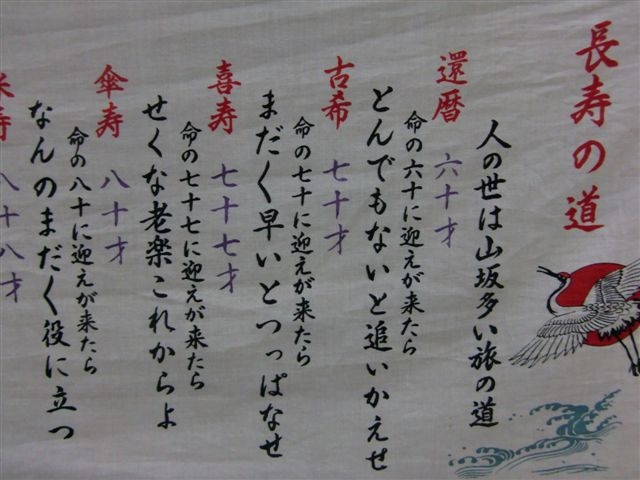 長寿の道
人の世は山坂多い旅の道
還暦 六十才
命の六十に迎えが来たら
とんでもないと追いかえせ
古希 七十才
命の七十に迎えが来たら
まだ〱早いとつっぱなせ
喜寿 七十七才
命の七十七に迎えが来たら
せくな老楽これからよ
傘寿 八十才
命の八十に迎えが来たら
なんのまだ〱役に立つ
米寿 八十八才